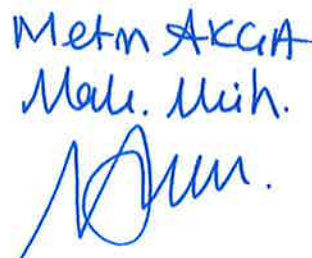 Metin AKÇA
Mak. Müh.